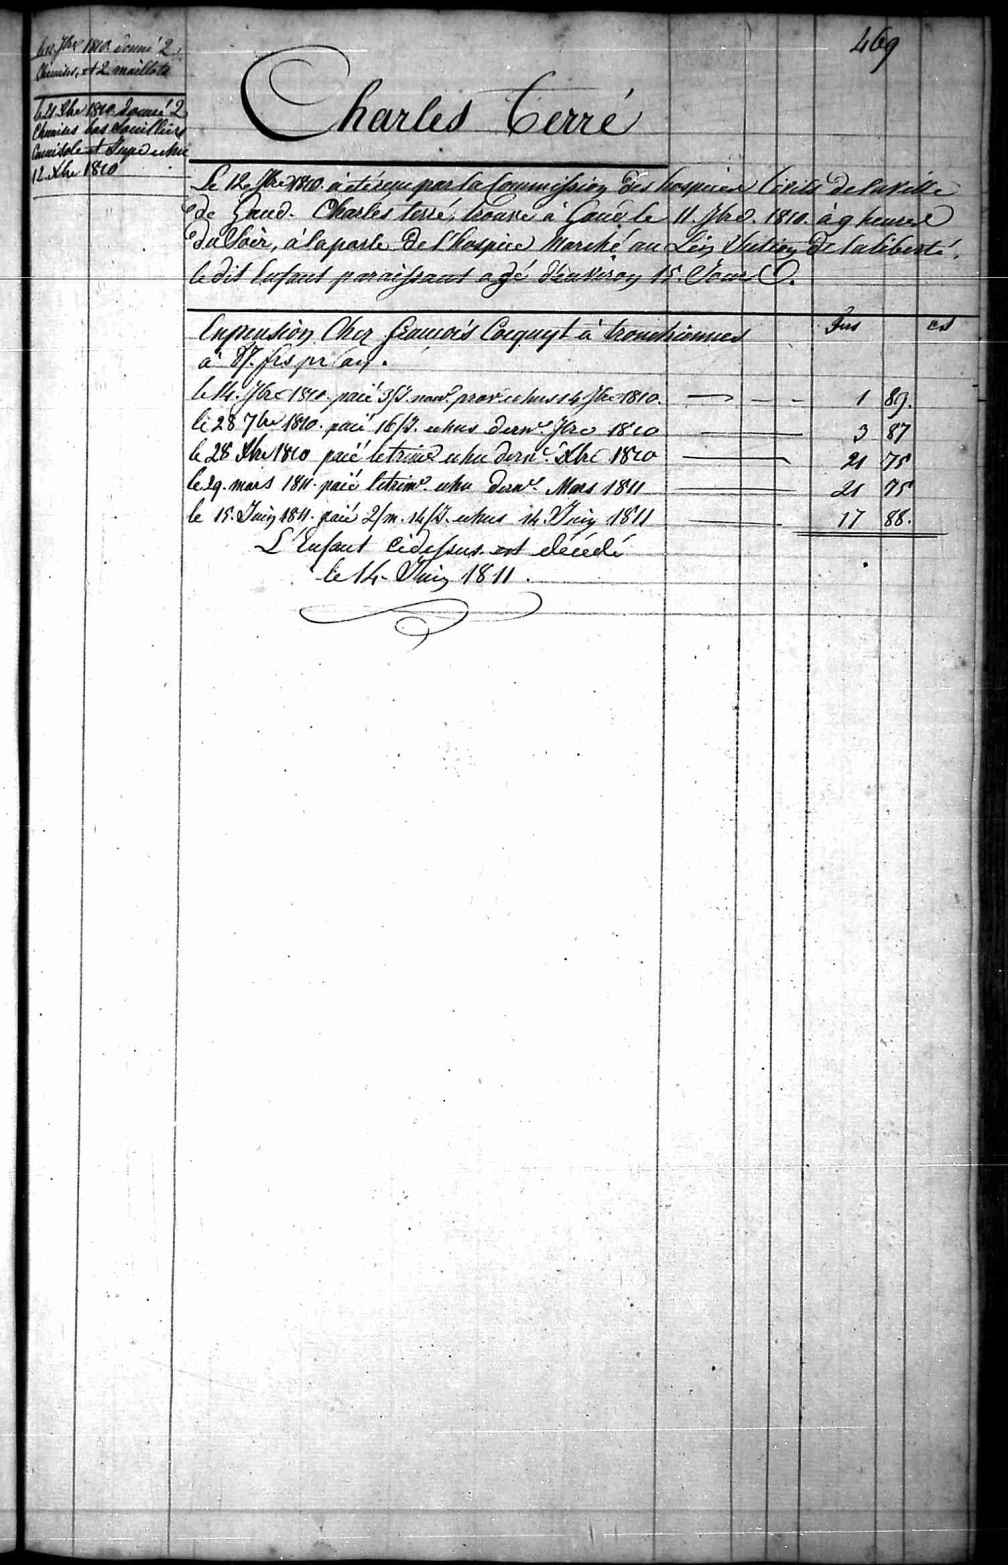 469
le 12 7bre 1810 donné 2
Chemises, et 2 maillots
le 21 Xbre 1810 donné 2
Chemises bas Souilliers
Camisole et Jupe echu
12 Xbre 1810
Charles Terré
Le 12 7bre 1810. a été reçu par la Commission des hospices Civils de la ville
de Gand. Charles terré, trouvé à Gand le 11. 7bre. 1810. à 9 heures
du Soir, à la porte de l'hospice Marché au Lin Section de la liberté.
le dit Enfant paraissant agé d'environ 15. Jours.
En pension Chez francois Cocquyt à tronchiennes
à 87. frs pr an.
frs cs
le 14. 7bre 1810. paié 3/J. echus 14 7bre 1810. 1 89.
le 28 7bre 1810. paié 16/J. echus dernr. 7bre 1810 3 87
le 28 Xbre 1810 paié le trime echu dernr. Xbre 1810 21 75
le 29. mars 1811. paié le trime. echu dernr. Mars 1811 21 75
le 15. Juin 1811. paié 2/m. 14/J. echus 14. Juin 1811 17 88.
L'Enfant cidessus est décédé
le 14. Juin 1811.